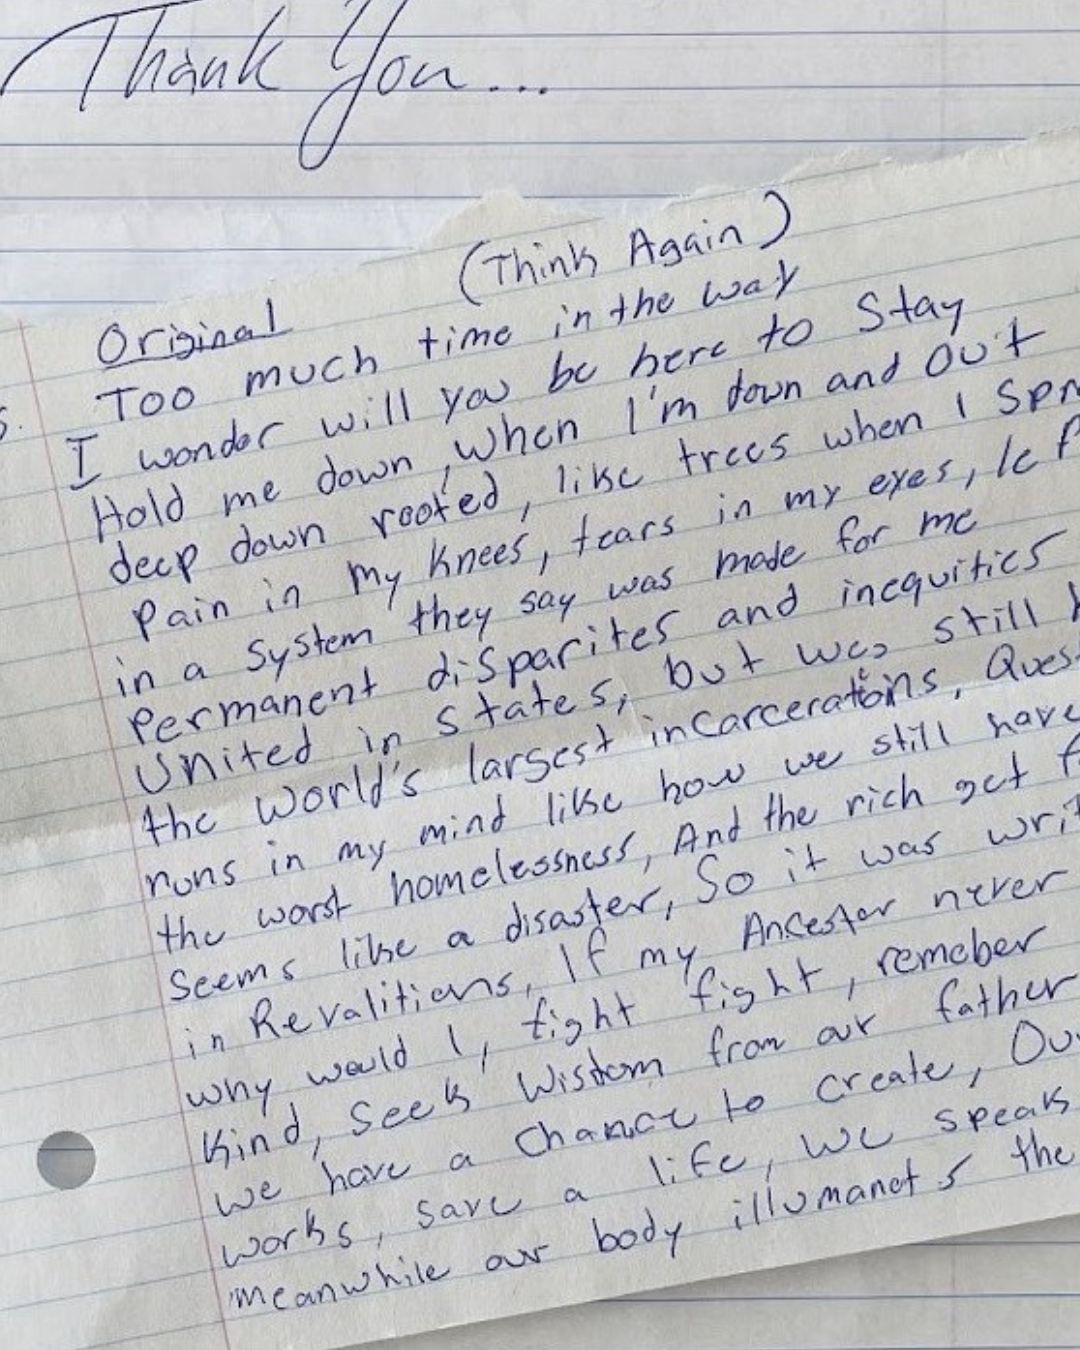 Thank You...
(Think Again)
Original
Too much time in the way
I wonder will you be here to Stay
Hold me down, when I'm down and Out
deep down rooted, like trees when I
Pain in my knees, tears in my eyes,
in a System they say was made for me
Permanent disparites and inequities
United in States, but was still
the world's largest incarcerations,
runs in my mind like how we still have
the worst homelessness, And the rich get
Seems like a disaster, So it was
in Revalitians, If my Ancestor never
why would I, fight fight, remeber
Kind, Seek Wisdom from our father
we have a Chance to create,
works, save a life, we speak
meanwhile our body the